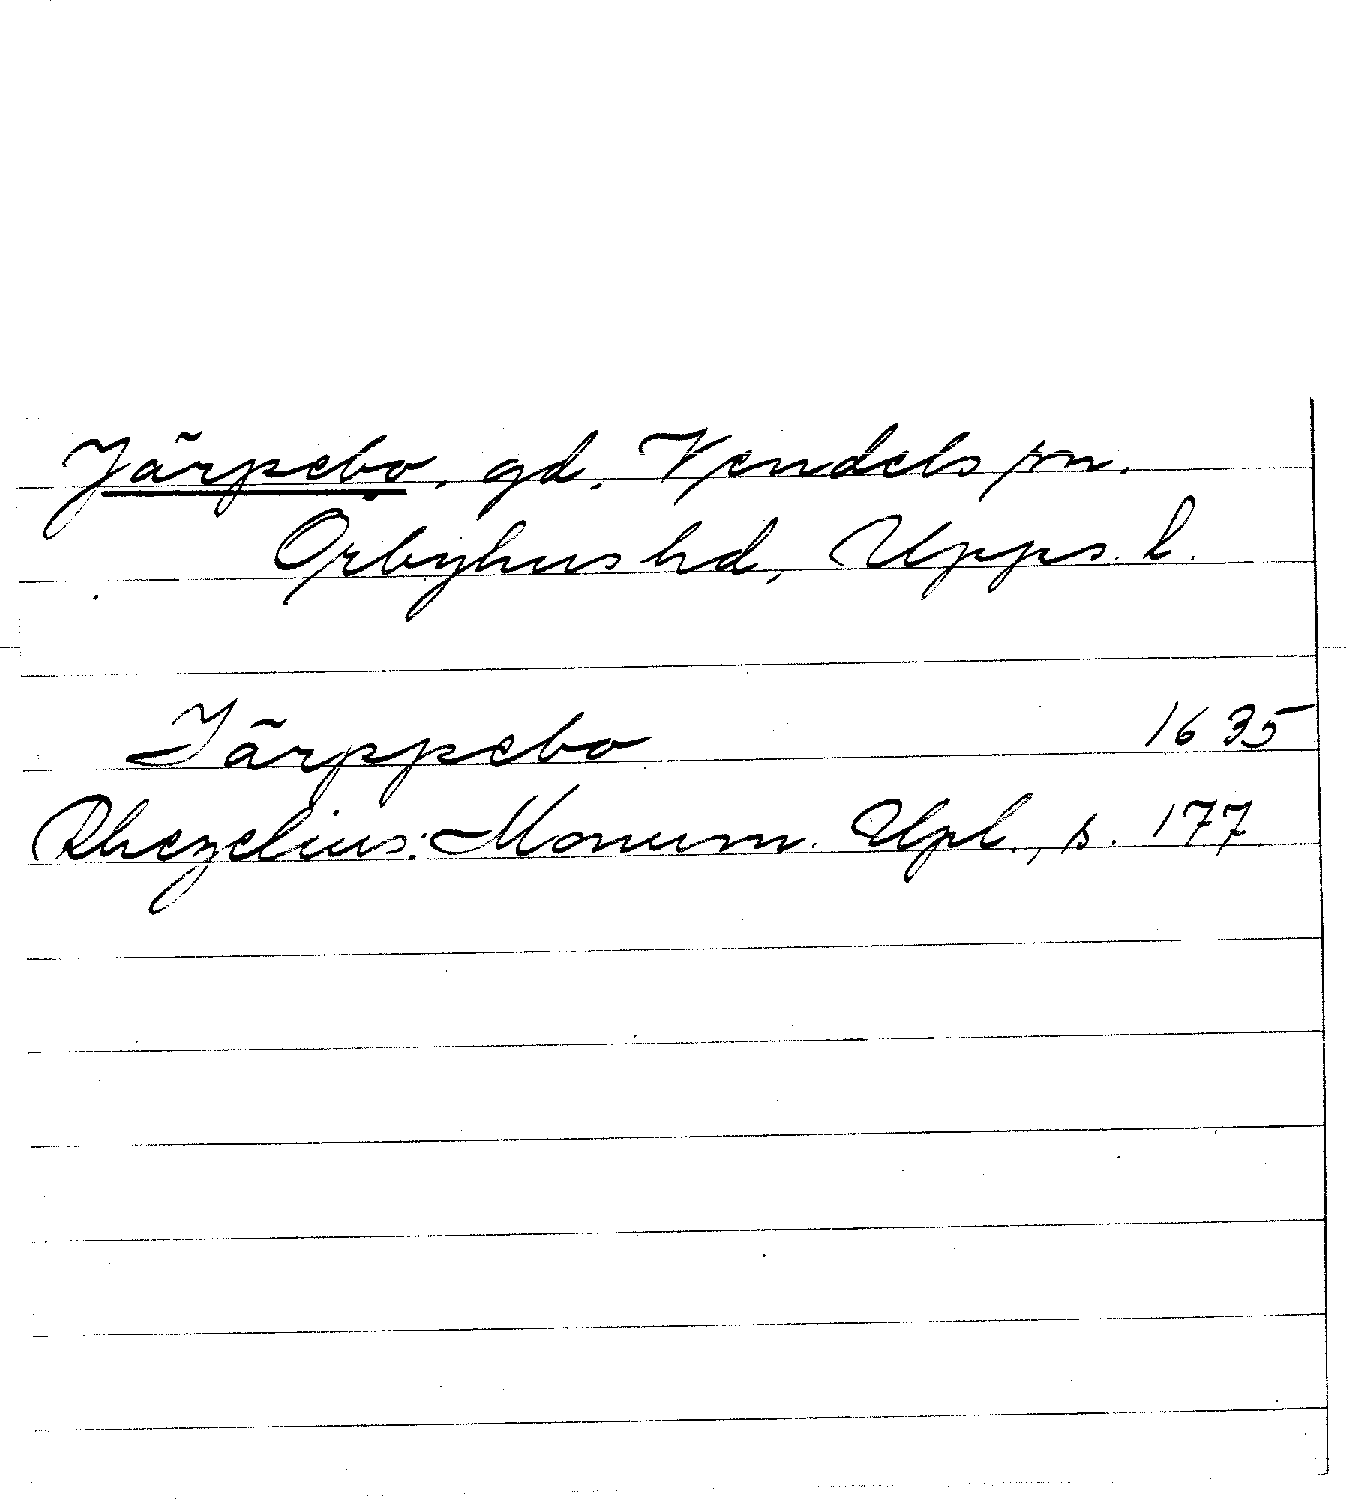 Järpebo, gd, Vendels sn.
Örbyhus hd, Upps. l.
Järppebo 1635
Rhezelius: Monum. Upl., s. 177